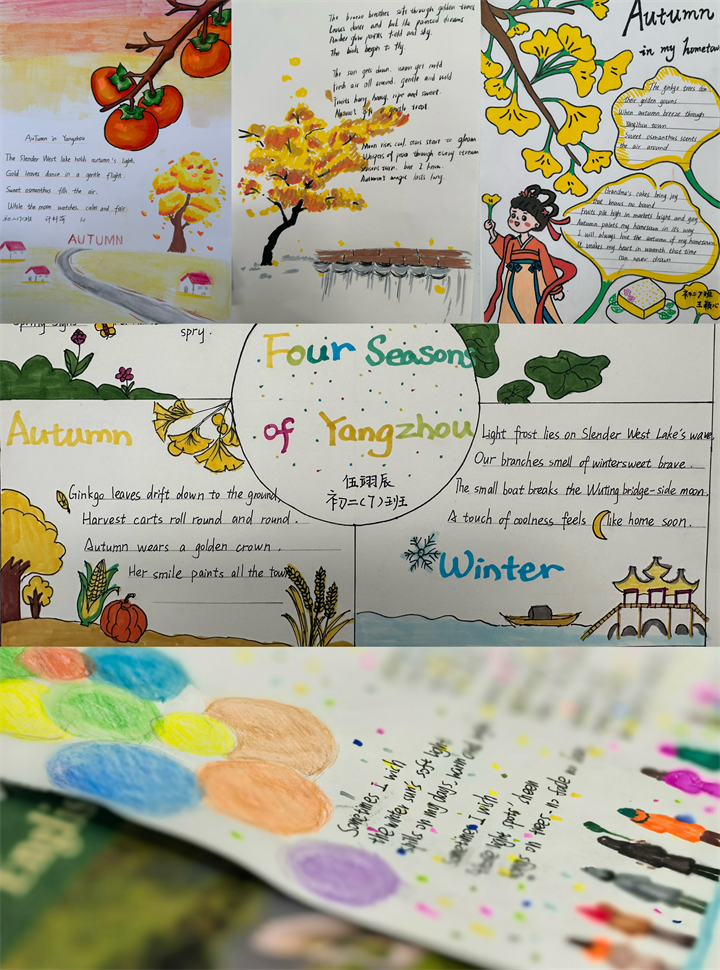 Autumn in Yangzhou
The Slender West Lake holds autumn's light,
Gold leaves dance in a gentle flight.
Sweet osmanthus fills the air,
While the moon watches, calm and fair.
AUTUMN
The breeze breathes soft through golden
Leaves dance and the painted dreams
Amber glow paints field and sky.
The birds begin to fly.
The sun goes down, warm yet mild
Fresh air all around, gentle and mild
Fruits hang heavy, ripe and sweet.
Nature's gentle treat
Moon rises, cool stars start to gleam
Whispers of peace through every stream
Autumn's magic lasts long.
Autumn
in my hometown
The ginkgo trees don
their golden gowns
When autumn breeze through
Yangzhou town
Sweet osmanthus scents
the air around
Grandma's cakes bring joy
that knows no bound
Fruits pile high in markets bright and gay
Autumn paints my hometown in its way
I will always love the autumn of my hometown
It makes my heart in warmth that time
can never drown
初二7班
王
spry.
Four Seasons
of Yangzhou
伍翊辰
初二(7)班
Autumn
Ginkgo leaves drift down to the ground,
Harvest carts roll round and round.
Autumn wears a golden crown,
Her smile paints all the town
Light frost lies on Slender West Lake's wave,
Our branches smell of wintersweet brave.
The small boat breaks the Wuting bridge-side moon,
A touch of coolness feels like home soon.
Winter
Sometimes I wish
the winter sun's soft light
spills on my days, warm and
Sometimes I wish
these light spots' sheen
on trees-no fade
English